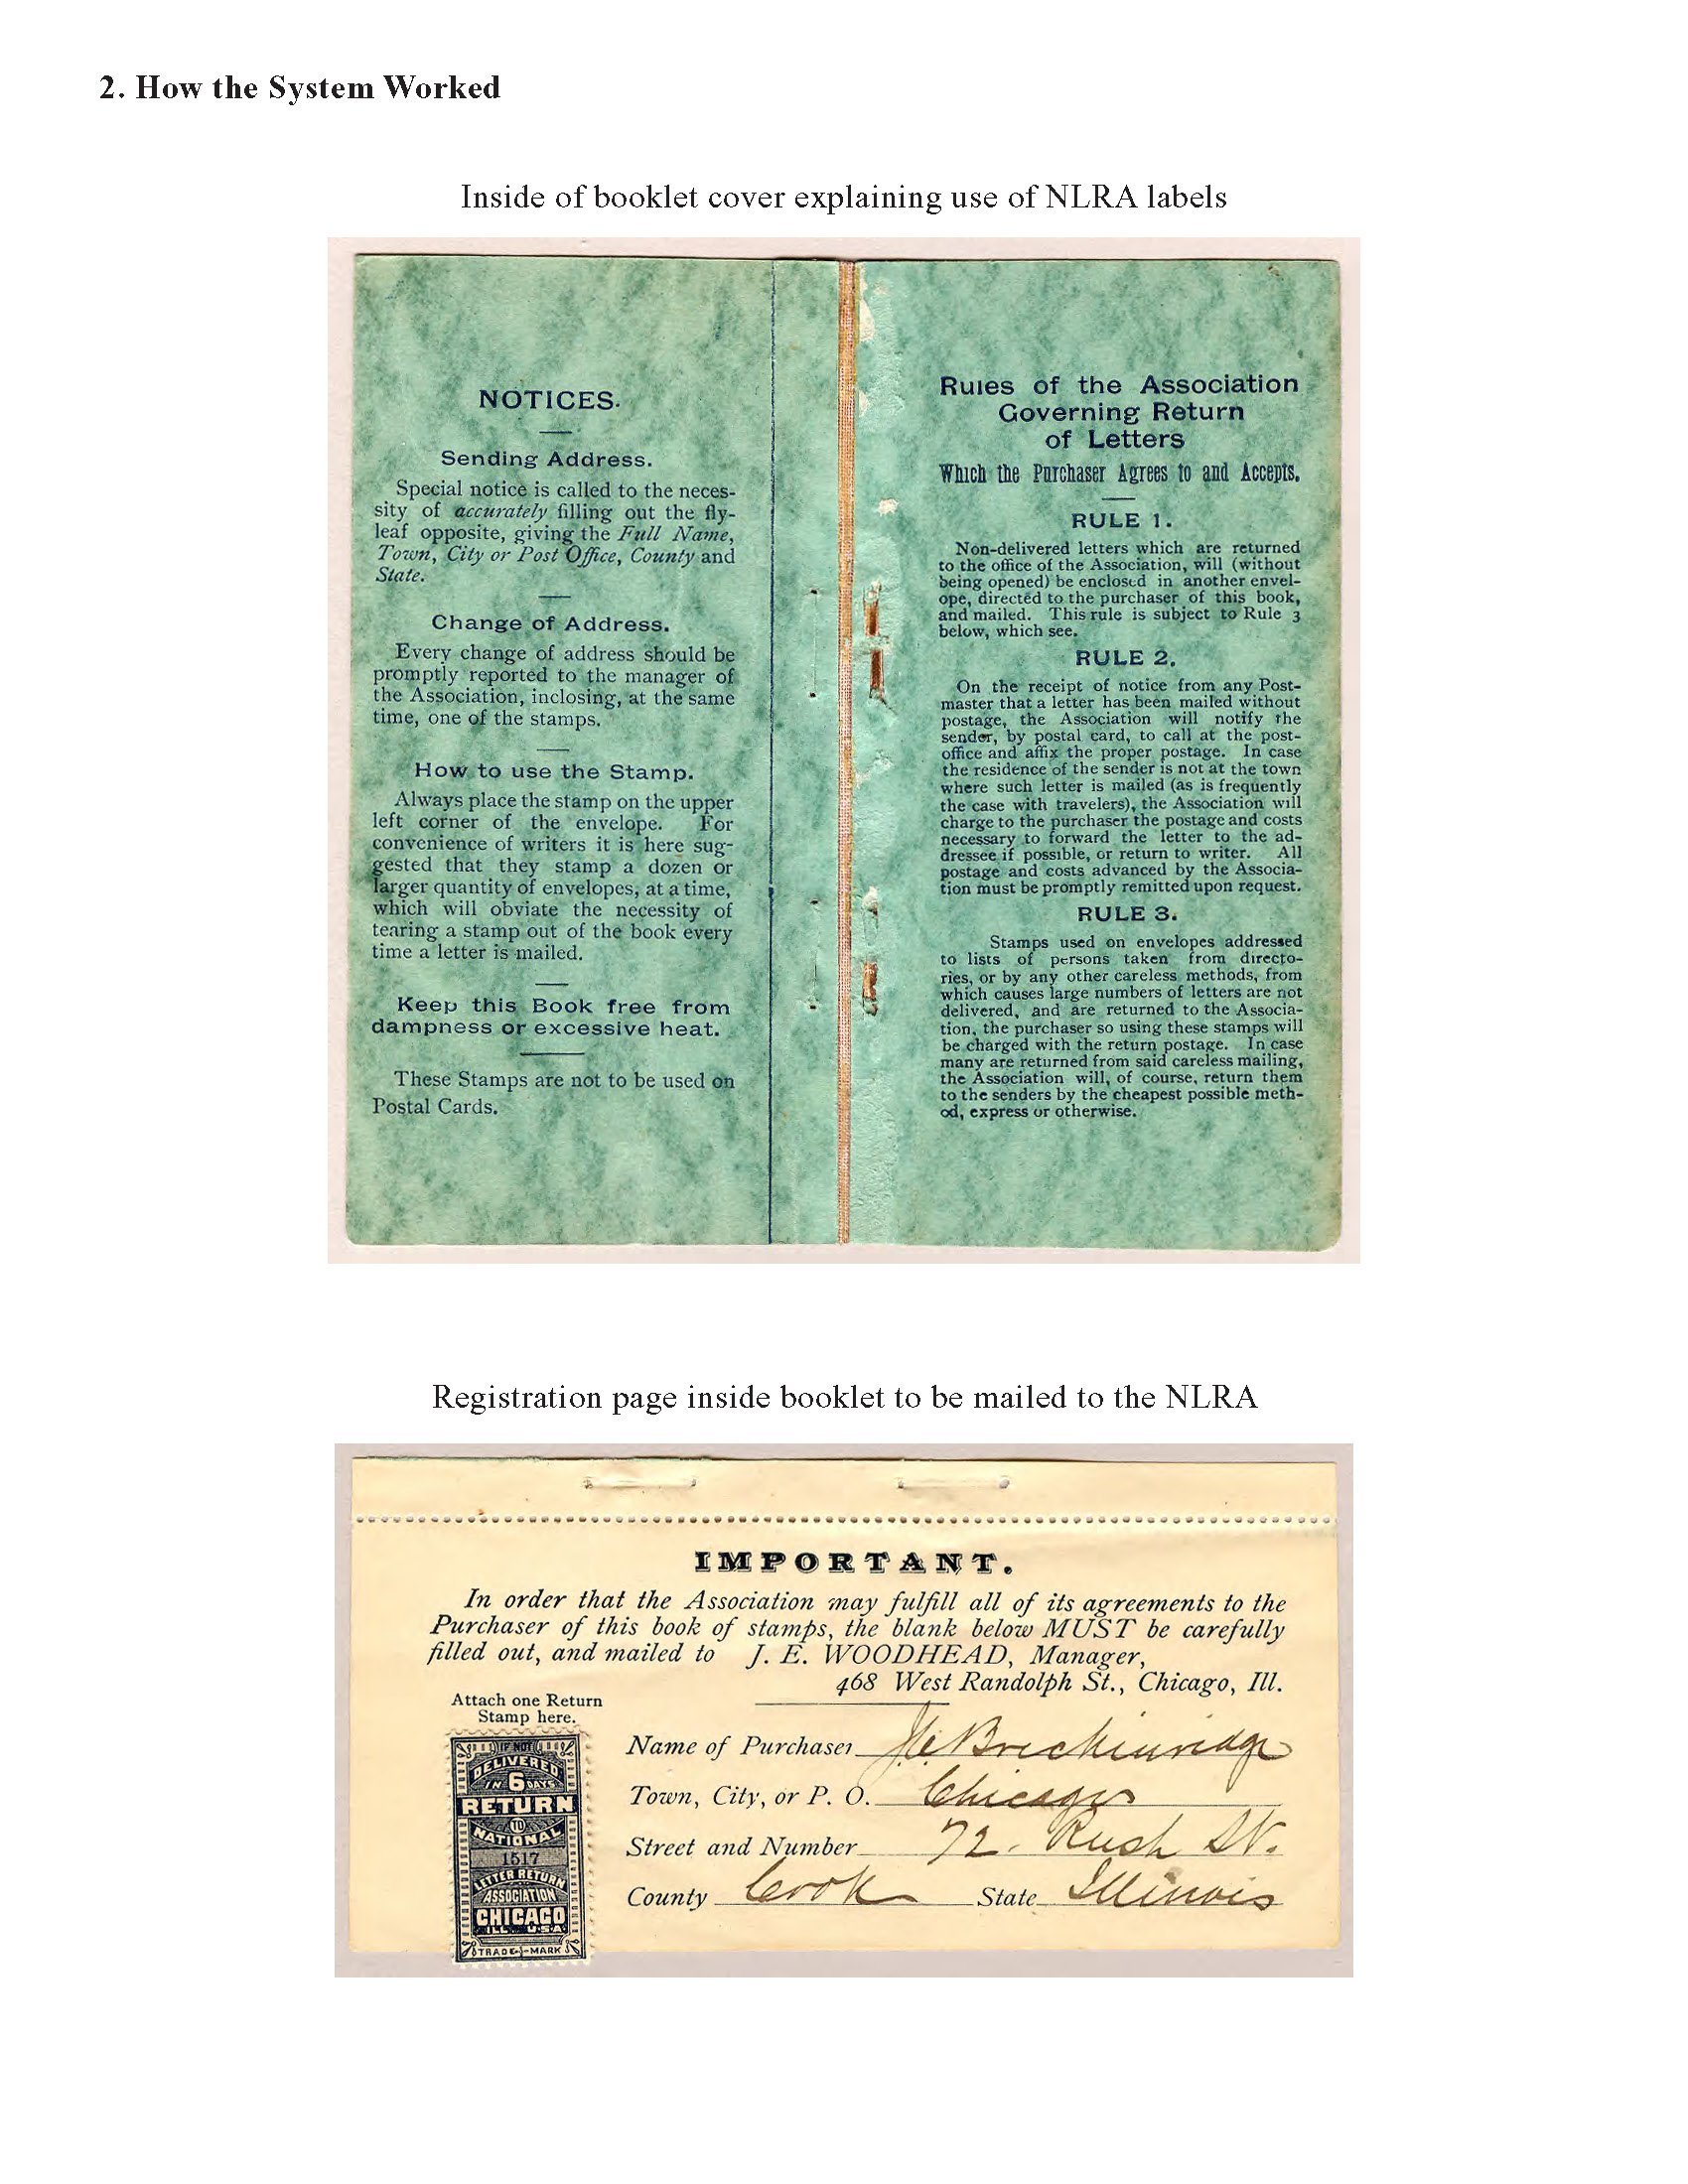 2. How the System Worked
Inside of booklet cover explaining use of NLRA labels
NOTICES.
Sending Address.
Special notice is called to the neces-
sity of accurately filling out the fly-
leaf opposite, giving the Full Name,
Town, City or Post Office, County and
State.
Change of Address.
Every change of address should be
promptly reported to the manager of
the Association, inclosing, at the same
time, one of the stamps.
How to use the Stamp.
Always place the stamp on the upper
left corner of the envelope. For
convenience of writers it is here sug-
gested that they stamp a dozen or
larger quantity of envelopes, at a time,
which will obviate the necessity of
tearing a stamp out of the book every
time a letter is mailed.
Keep this Book free from
dampness or excessive heat.
These Stamps are not to be used on
Postal Cards.
Rules of the Association
Governing Return
of Letters
Which the Purchaser Agrees to and Accepts.
RULE 1.
Non-delivered letters which are returned
to the office of the Association, will (without
being opened) be enclosed in another envel-
ope, directed to the purchaser of this book,
and mailed. This rule is subject to Rule 3
below, which see.
RULE 2.
On the receipt of notice from any Post-
master that a letter has been mailed without
postage, the Association will notify the
sender, by postal card, to call at the post-
office and affix the proper postage. In case
the residence of the sender is not at the town
where such letter is mailed (as is frequently
the case with travelers), the Association will
charge to the purchaser the postage and costs
necessary to forward the letter to the ad-
dressee if possible, or return to writer. All
postage and costs advanced by the Associa-
tion must be promptly remitted upon request.
RULE 3.
Stamps used on envelopes addressed
to lists of persons taken from directo-
ries, or by any other careless methods, from
which causes large numbers of letters are not
delivered, and are returned to the Associa-
tion, the purchaser so using these stamps will
be charged with the return postage. In case
many are returned from said careless mailing,
the Association will, of course, return them
to the senders by the cheapest possible meth-
od, express or otherwise.
Registration page inside booklet to be mailed to the NLRA
IMPORTANT.
In order that the Association may fulfill all of its agreements to the
Purchaser of this book of stamps, the blank below MUST be carefully
filled out, and mailed to J. E. WOODHEAD, Manager,
468 West Randolph St., Chicago, Ill.
Attach one Return
Stamp here.
IF NOT
DELIVERED
IN 6 DAYS
RETURN
TO
NATIONAL
1517
LETTER RETURN
ASSOCIATION
CHICAGO
ILL. U.S.A.
TRADE-MARK
Name of Purchaser Breckinridge
Town, City, or P. O. Chicago
Street and Number 72. Rush St.
County Cook State Illinois